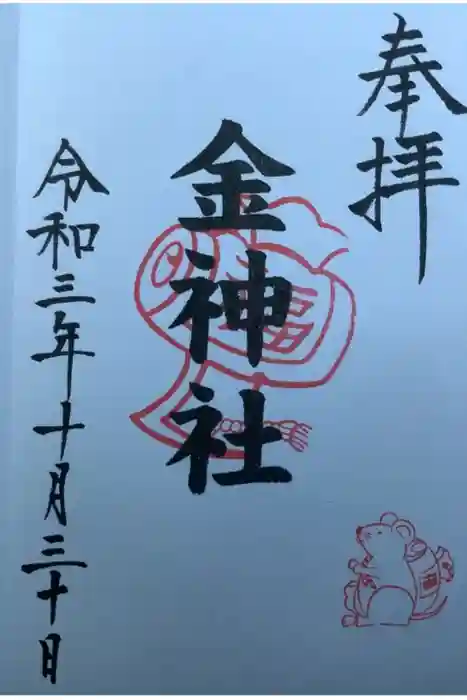 奉拝
金神社
福
令和三年十月三十日